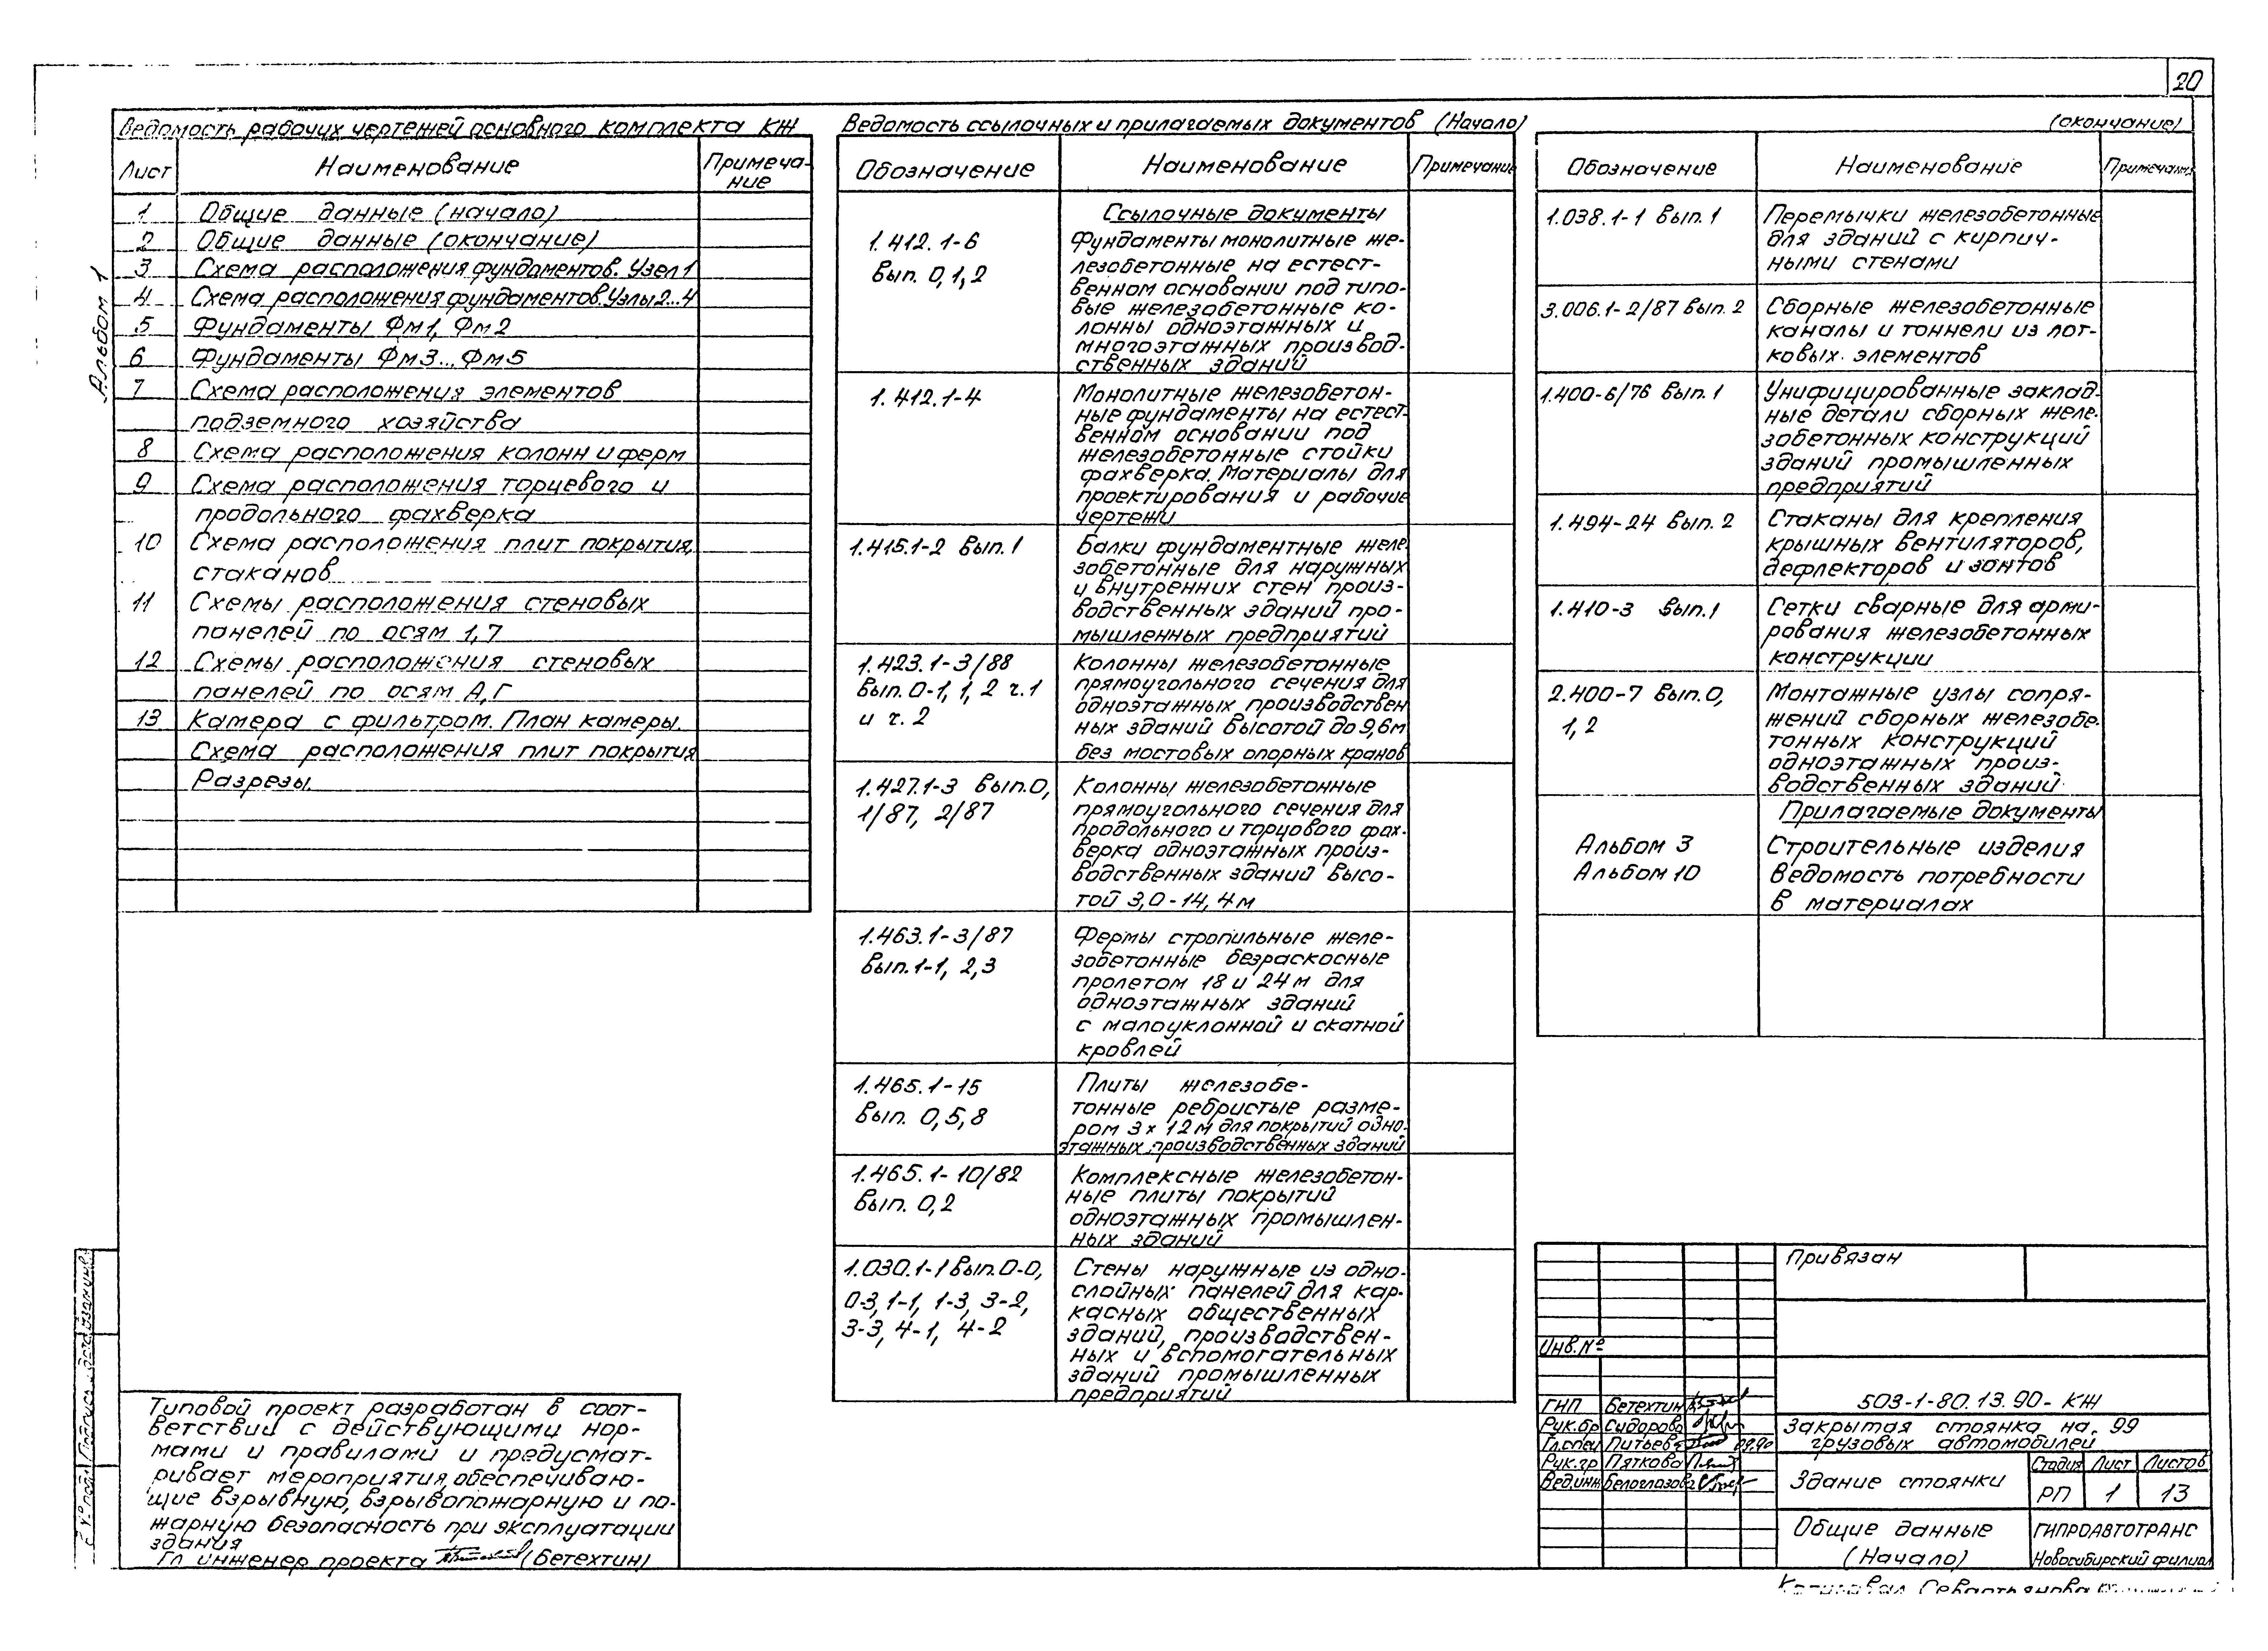 20
Альбом 1
Ведомость рабочих чертежей основного комплекта КЖ
Лист Наименование Примеча-
ние
1 Общие данные (начало)
2 Общие данные (окончание)
3 Схема расположения фундаментов. Узел 1
4 Схема расположения фундаментов. Узлы 2...4
5 Фундаменты Фм1, Фм2
6 Фундаменты Фм3...Фм5
7 Схема расположения элементов
подземного хозяйства
8 Схема расположения колонн и ферм
9 Схема расположения торцевого и
продольного фахверка
10 Схема расположения плит покрытия,
стаканов
11 Схемы расположения стеновых
панелей по осям 1,7
12 Схемы расположения стеновых
панелей по осям А,Г
13 Камера с фильтром. План камеры.
Схема расположения плит покрытия
Разрезы.
Ведомость ссылочных и прилагаемых документов (Начало)
Обозначение Наименование Примечание
Ссылочные документы
1.412.1-6 Фундаменты монолитные же-
вып. 0,1,2 лезобетонные на естест-
венном основании под типо-
вые железобетонные ко-
лонны одноэтажных и
многоэтажных производ-
ственных зданий
1.412.1-4 Монолитные железобетон-
ные фундаменты на естест-
венном основании под
железобетонные стойки
фахверка. Материалы для
проектирования и рабочие
чертежи
1.415.1-2 вып.1 Балки фундаментные желе-
зобетонные для наружных
и внутренних стен произ-
водственных зданий про-
мышленных предприятий
1.423.1-3/88 Колонны железобетонные
вып. 0-1, 1, 2 ч.1 прямоугольного сечения для
и ч. 2 одноэтажных производствен
ных зданий высотой до 9,6м
без мостовых опорных кранов
1.427.1-3 вып.0, Колонны железобетонные
1/87, 2/87 прямоугольного сечения для
продольного и торцового фах-
верка одноэтажных произ-
водственных зданий высо-
той 3,0-14,4м
1.463.1-3/87 Фермы стропильные желе-
вып.1-1, 2,3 зобетонные безраскосные
пролетом 18 и 24м для
одноэтажных зданий
с малоуклонной и скатной
кровлей
1.465.1-15 Плиты железобе-
вып. 0,5,8 тонные ребристые разме-
ром 3х12м для покрытий одно-
этажных производственных зданий
1.465.1-10/82 Комплексные железобетон-
вып. 0,2 ные плиты покрытий
одноэтажных промышлен-
ных зданий
1.030.1-1 вып.0-0, Стены наружные из одно-
0-3, 1-1, 1-3, 3-2, слойных панелей для кар-
3-3, 4-1, 4-2 касных общественных
зданий, производствен-
ных и вспомогательных
зданий промышленных
предприятий
(окончание)
Обозначение Наименование Примечание
1.038.1-1 вып.1 Перемычки железобетонные
для зданий с кирпич-
ными стенами
3.006.1-2/87 вып. 2 Сборные железобетонные
каналы и тоннели из лот-
ковых элементов
1.400-6/76 вып.1 Унифицированные заклад-
ные детали сборных желе-
зобетонных конструкций
зданий промышленных
предприятий
1.494-24 вып. 2 Стаканы для крепления
крышных вентиляторов,
дефлекторов и зонтов
1.410-3 вып.1 Сетки сварные для арми-
рования железобетонных
конструкции
2.400-7 вып.0, Монтажные узлы сопря-
1, 2 жений сборных железобе-
тонных конструкций
одноэтажных произ-
водственных зданий
Прилагаемые документы
Альбом 3 Строительные изделия
Альбом 10 Ведомость потребности
в материалах
Типовой проект разработан в соот-
ветствии с действующими нор-
мами и правилами и предусмат-
ривает мероприятия, обеспечиваю-
щие взрывную, взрывопожарную и по-
жарную безопасность при эксплуатации
здания
Гл инженер проекта (Бетехтин)
Привязан
Инв.№
503-1-80.13.90-КЖ
ГНП Бетехтин
Рук.бр Сидорова
Гл.спец Питьев 09.90
Рук.гр Пяткова
Вед.инж Белоглазова
Закрытая стоянка на 99
грузовых автомобилей
Здание стоянки
Стадия Лист Листов
РП 1 13
Общие данные
(Начало)
ГИПРОАВТОТРАНС
Новосибирский филиал
Копировал Севастьянова